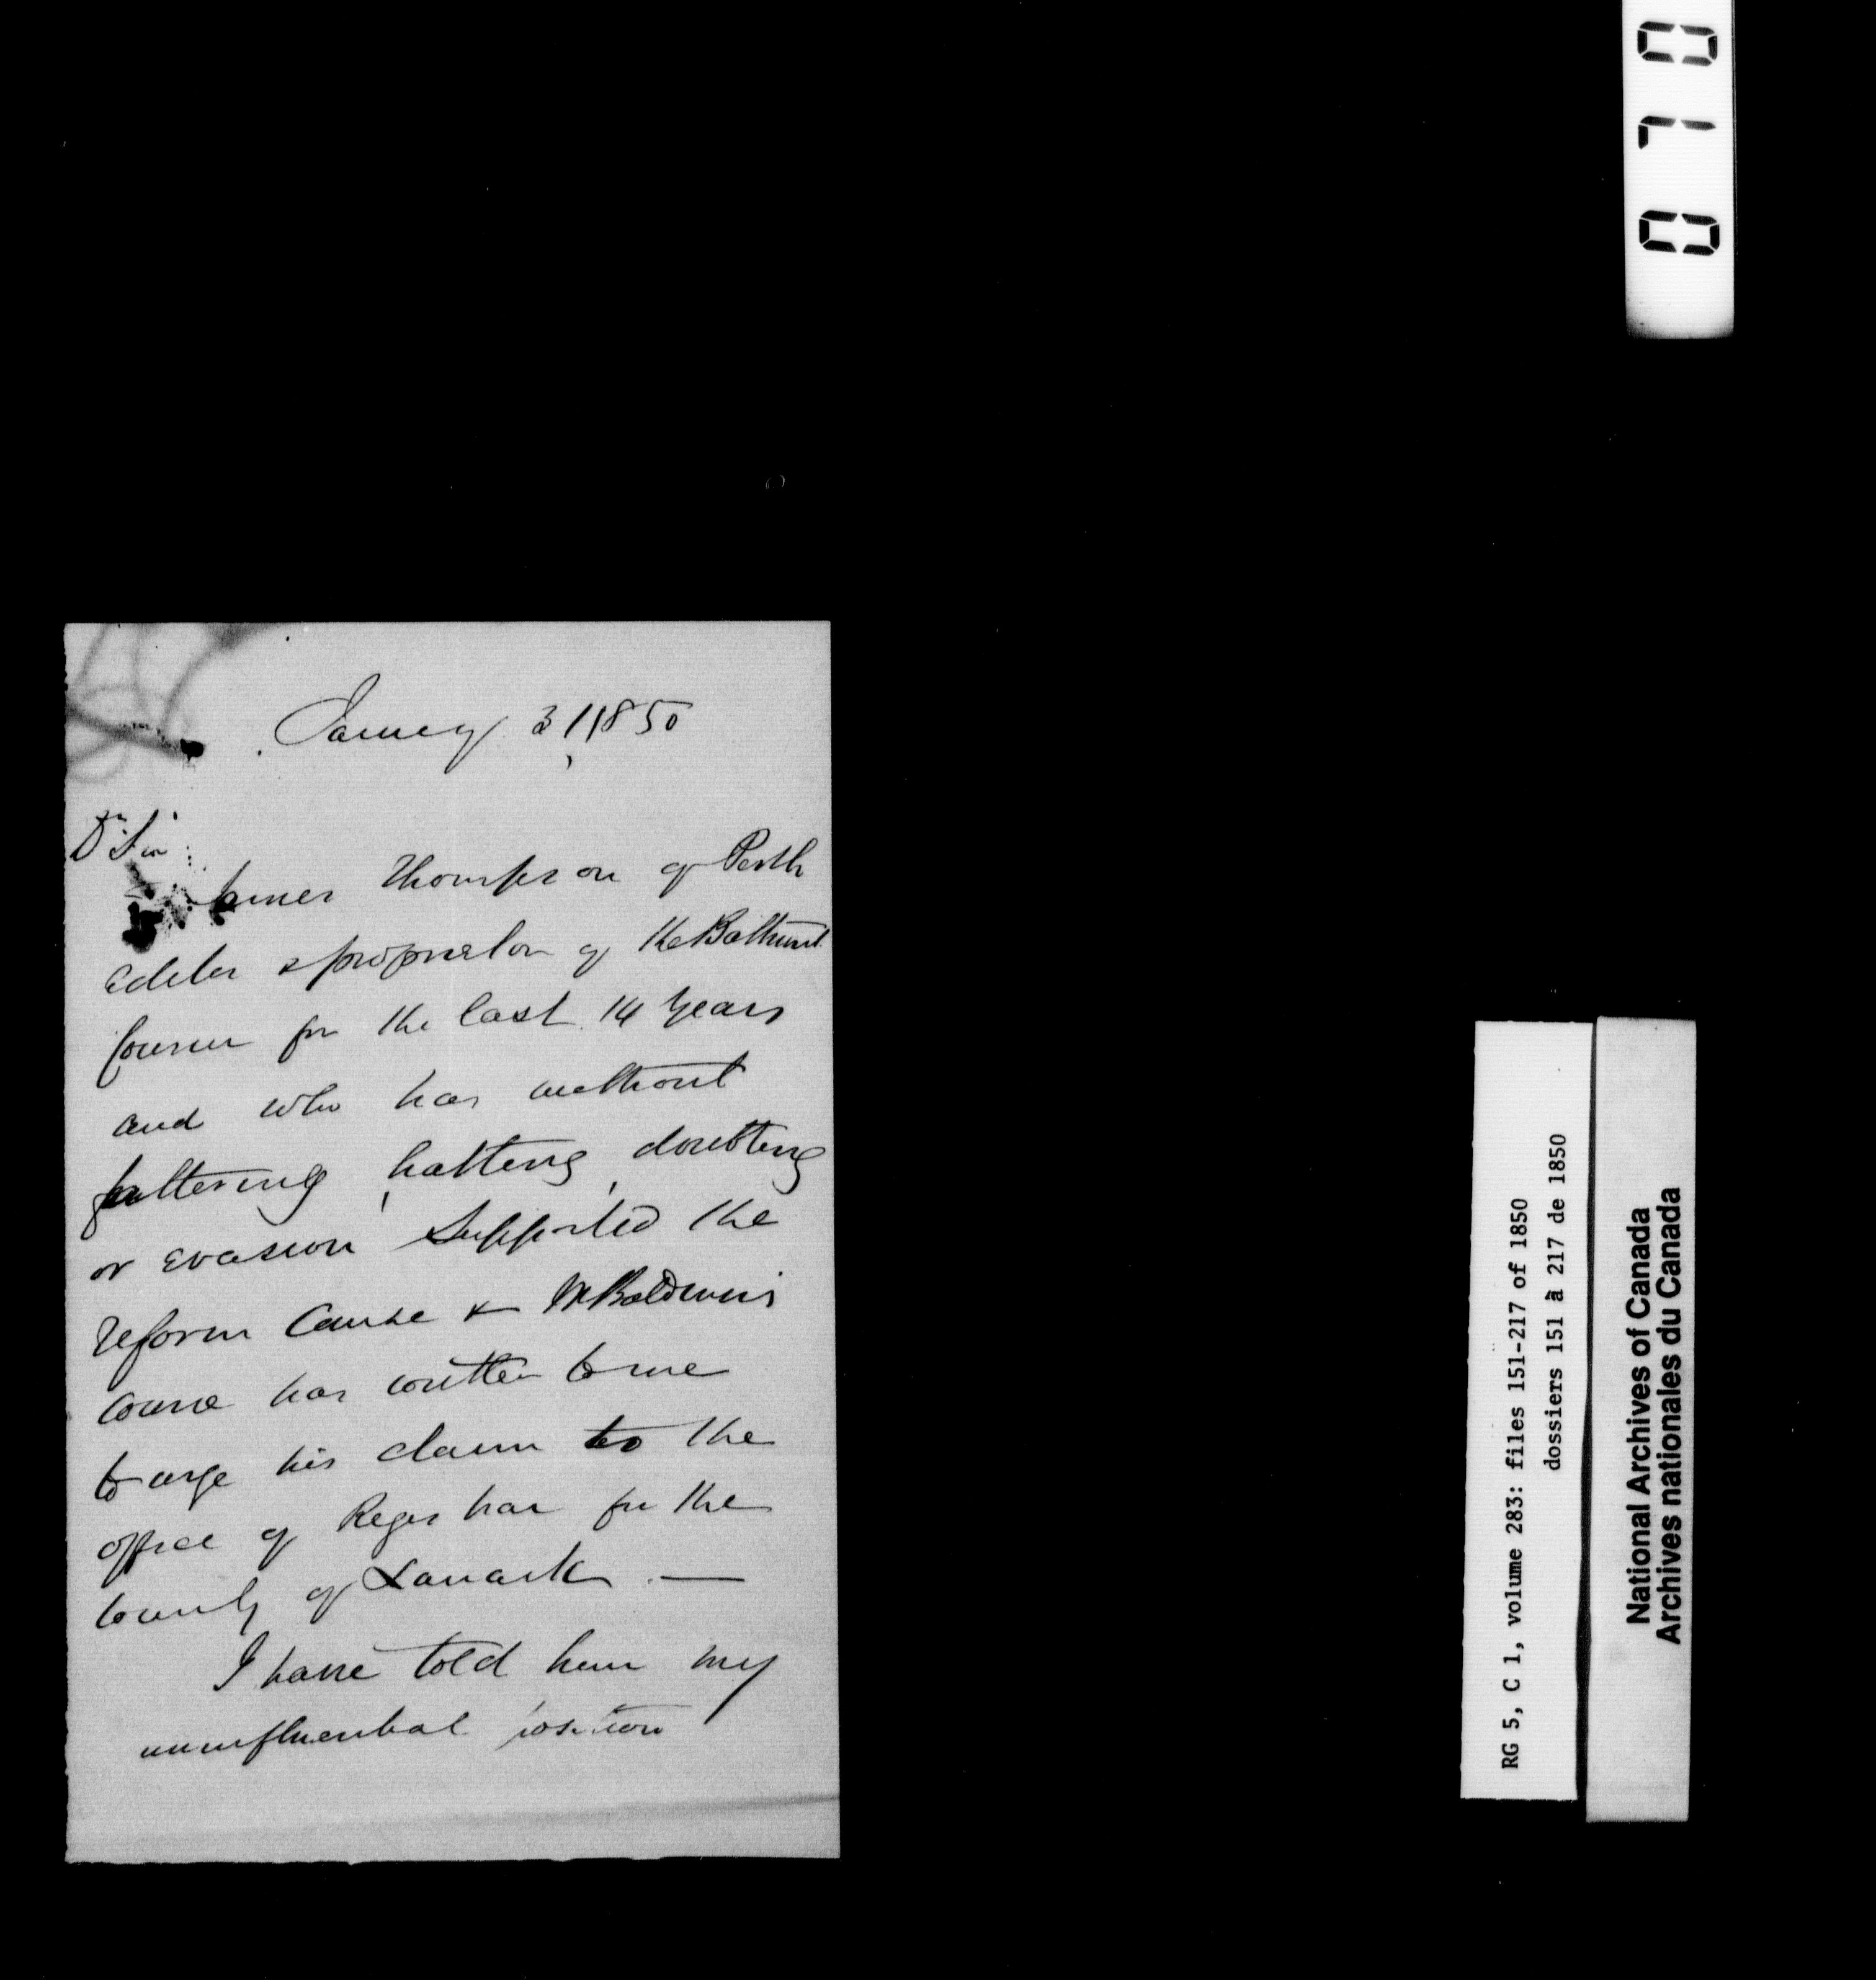 January 31, 1850
Dr Sir:
James Thompson of Perth
editor & proprietor of the Bathurst
Courier for the last 14 years
and who has without
faltering, halting, doubting
or evasion supported the
reform cause & Mr Baldwin's
course has written to me
to urge his claim to the
office of Registrar for the
County of Lanark. —
I have told him my
uninfluential position
070
RG 5, C 1, volume 283: files 151-217 of 1850
dossiers 151 à 217 de 1850
National Archives of Canada
Archives nationales du Canada